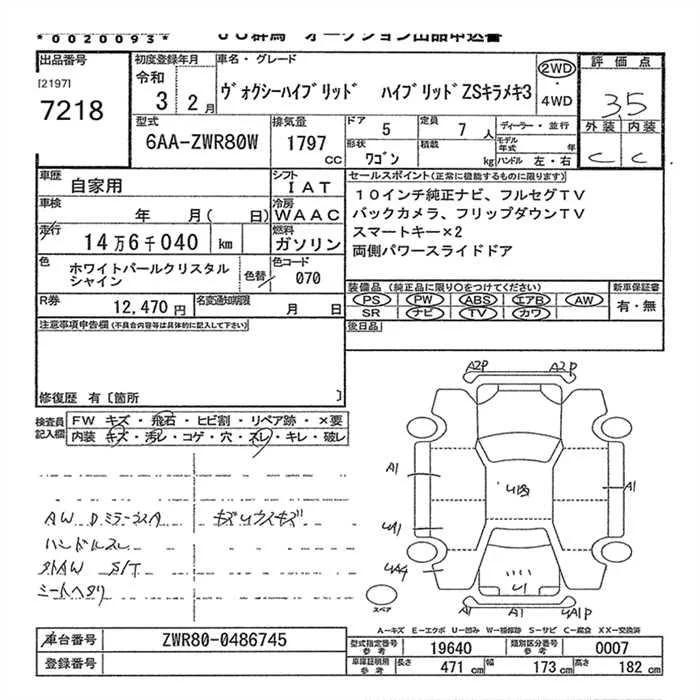 *0020093*
JU群馬 オークション出品申込書
出品番号
[2197]
7218
初度登録年月
令和
3 2月
車名・グレード
ヴォクシーハイブリッド ハイブリッドZSキラメキ3
2WD
・
4WD
評価点
3.5
外装 内装
C C
型式
6AA-ZWR80W
排気量
1797
CC
ドア 5
定員 7人
ディーラー・並行
形状
ワゴン
積載
kg
モデル年式 年
ハンドル 左・右
車歴
自家用
シフト
IAT
車検
年 月( 日)
冷房
WAAC
走行
14万6千040 km
燃料
ガソリン
色
ホワイトパールクリスタル
シャイン
色替
色コード
070
R券
12,470円
名変通知期限
月 日
セールスポイント(正常に機能するものに限ります)
10インチ純正ナビ、フルセグTV
バックカメラ、フリップダウンTV
スマートキー×2
両側パワースライドドア
装備品(純正品に限り○をつけてください)
PS PW ABS エアB AW
SR ナビ TV カワ
新車保証書
有・無
後日品
注意事項申告欄(不具合内容等は具体的に記入して下さい)
修復歴 有〔箇所 〕
検査員
記入欄
FW キズ・飛石・ヒビ割・リペア跡・×要
内装 キズ・汚レ・コゲ・穴・スレ・キレ・破レ
AW Dミラーズス キズ
ハンドルスレ
S/T
シートヘタリ
A2P A2P
A1
A1
UA4
A1
U1
A1 A1 UA1P
スペア
A-キズ E-エクボ U-凹み W-補修跡 S-サビ C-腐食 XX-交換済
車台番号
ZWR80-0486745
登録番号
型式指定番号
参考
19640
類別区分番号
参考
0007
車庫証明用
参考
長さ 471cm
幅 173cm
高さ 182cm